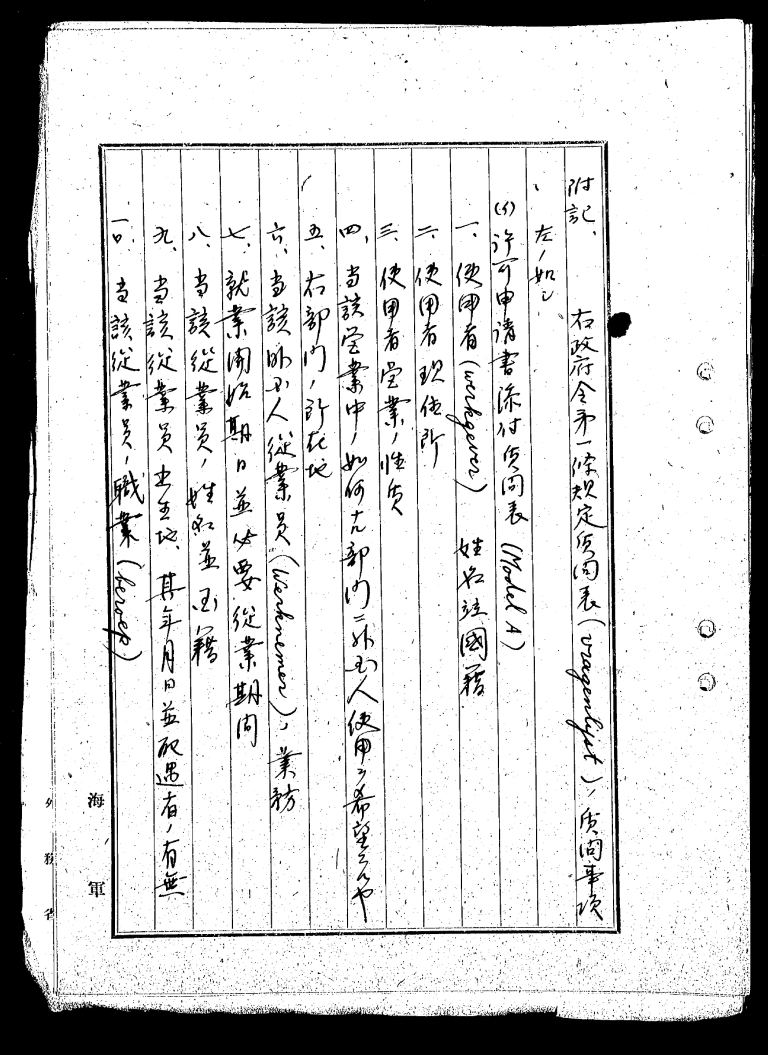 附記、 右政府令第一條規定質問表(vragenlijst)ノ質問事項
左ノ如シ
(イ)許可申請書添付質問表(Model A)
一、使用者(werkgever)姓名竝國籍
二、使用者現住所
三、使用者営業ノ性質
四、当該営業中ノ如何ナル部門ニ外国人使用ヲ希望スルヤ
五、右部門ノ所在地
六、当該外国人從業員(Werknemer)ノ業務
七、就業開始期日並必要從業期間
八、当該從業員ノ姓名並国籍
九、当該從業員出生地、其年月日並配遇者ノ有無
一〇、当該從業員ノ職業(beroep)
海軍
外務省